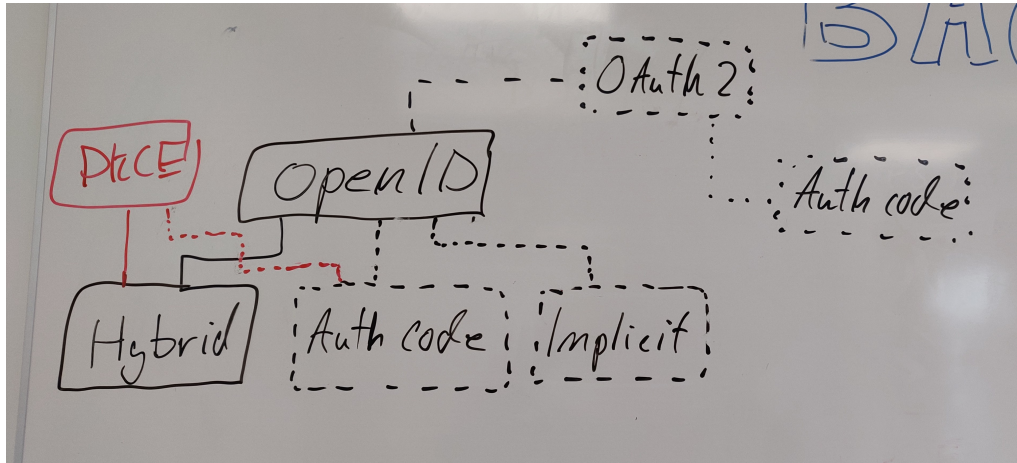 BAC
OAuth 2
PKCE
OpenID
Auth code
Hybrid
Auth code
Implicit